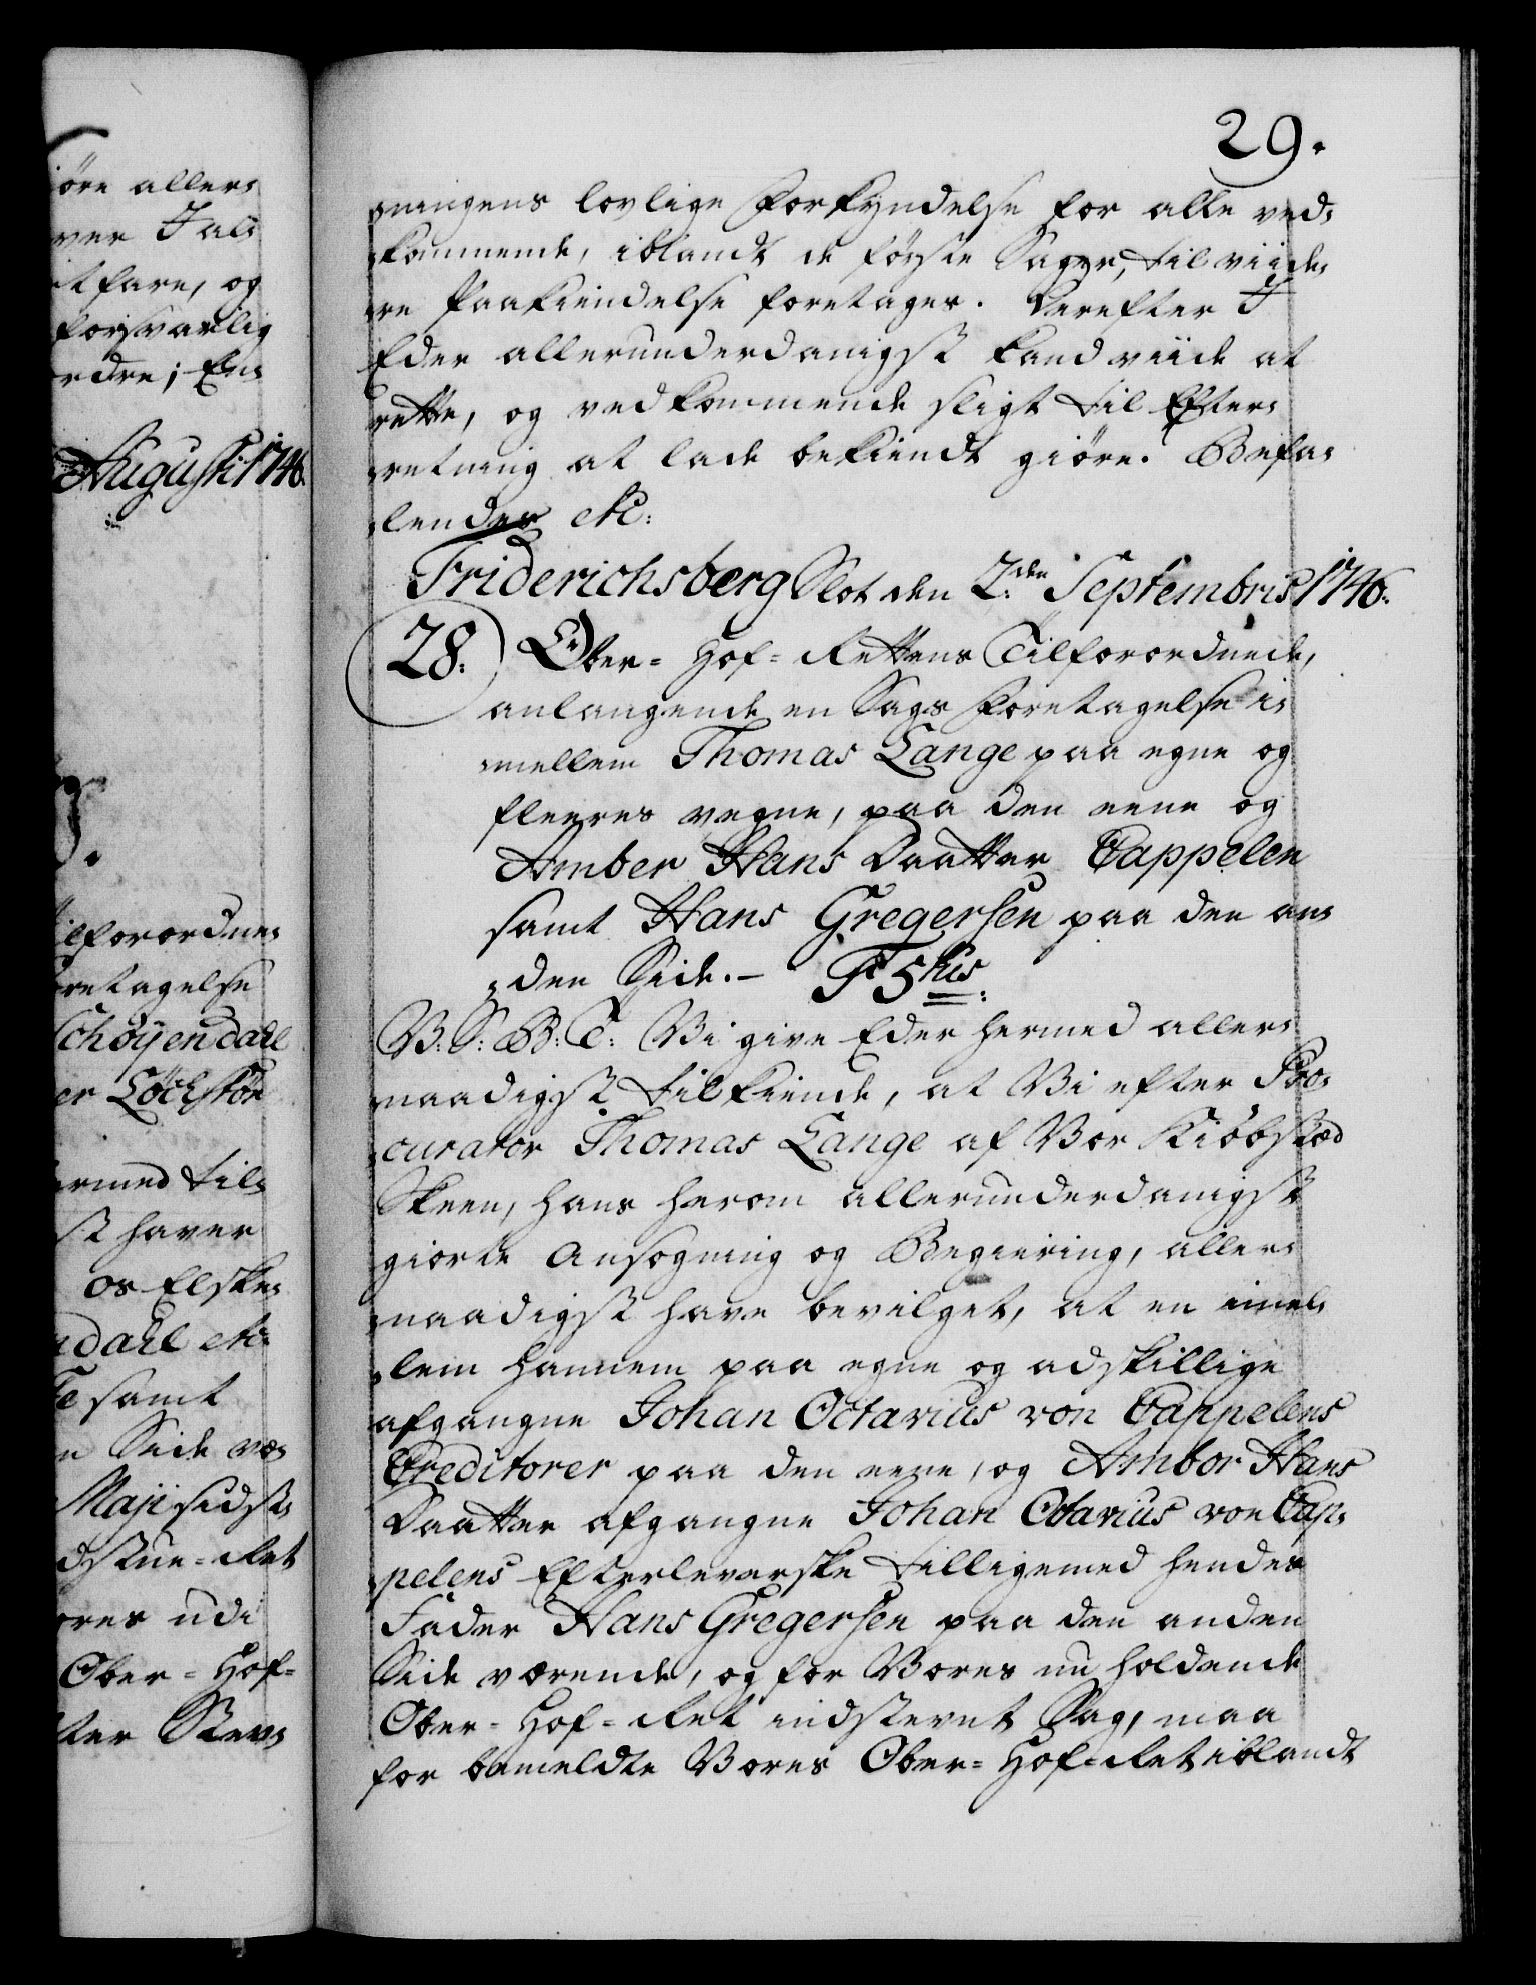 29.
ningens lovlige Forkyndelse for alle ved-
kommende, iblandt de første Sager, til viide-
re Paakiendelse foretages. Derefter I
Eder allerunderdanigst kand viide at
rette, og vedkommende sligt til Efter-
retning at lade bekiendt giöre. Befa-
lendes etc:
Friderichsberg Slot den 2den Septembris 1746.
28. Ober-Hof-Rettens Tilforordnede,
anlangende en Sags Foretagelse i-
mellem Thomas Lange paa egne og
fleeres vegne, paa den eene og
Amber Hans Daatter Cappelen
samt Hans Gregersen paa den an-
den Side.-
V: S: B: T: Vi give Eder hermed aller-
naadigst tilkiende, at Vi efter Pro-
curator Thomas Lange af Vor Kiöbstæd
Skeen, hans herom allerunderdanigst
giorte Ansøgning og Begiering, aller-
naadigst have bevilget, at en imel-
lem hannem paa egne og adskillige
afgangne Johan Octavius von Cappelens
Creditorer paa den eene, og Ambor Hans
Daatter afgangne Johan Octavius von Cap-
pelens Efterleverske tilligemed hendes
Fader Hans Gregersen paa den anden
Side værende, og for Vores nu holdende
Ober-Hof-Ret indstevnt Sag, maa
for bemeldte Vores Ober-Hof-Ret iblandt
öre aller-
forsvarlig
Augusti 1746.
ilforordne-
retagelse
Schöyendahl
er Löchstör
ermed til-
haver
os Elske-
dahl etc:
samt
Side væ-
Maji sidst-
ores udi
Ober-Hof-
ter Stev-